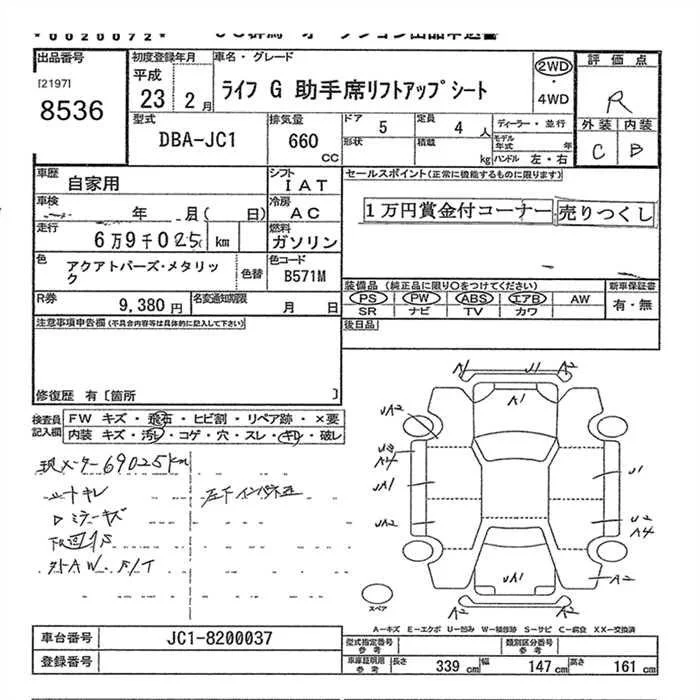 *0020072*
出品番号 初度登録年月 車名・グレード 評価点
[2197] 平成 ライフ G 助手席リフトアップシート 2WD・4WD R
8536 23 2月 外装 内装
型式 排気量 ドア 定員 ディーラー・並行 C B
DBA-JC1 660cc 5 4人 モデル年式 年
形状 積載 kg ハンドル 左・右
車歴 自家用 シフト IAT セールスポイント(正常に機能するものに限ります)
車検 年 月( 日) 冷房 AC 1万円賞金付コーナー 売りつくし
走行 6万9千025km 燃料 ガソリン
色 アクアトパーズ・メタリック 色替 色コード B571M
装備品(純正品に限り○をつけてください) 新車保証書
R券 9,380円 名変通知期限 月 日 PS PW ABS エアB AW 有・無
SR ナビ TV カワ
注意事項申告欄(不具合内容等は具体的に記入して下さい) 後日品
修復歴 有〔箇所 〕
検査員記入欄 FW キズ・飛石・ヒビ割・リペア跡・×要
内装 キズ・汚レ・コゲ・穴・スレ・キレ・破レ
現メーター69025km
シートキレ 左F インパネ
ミラーキズ
下廻りS
A1 A2 A1
A2
A4 J1
A1
A2 A4
A1 A2
A2 A2
スペア
A-キズ E-エクボ U-凹み W-補修跡 S-サビ C-腐食 XX-交換済
車台番号 JC1-8200037 型式指定番号 参考 類別区分番号 参考
登録番号 車庫証明用 参考 長さ 339cm 幅 147cm 高さ 161cm